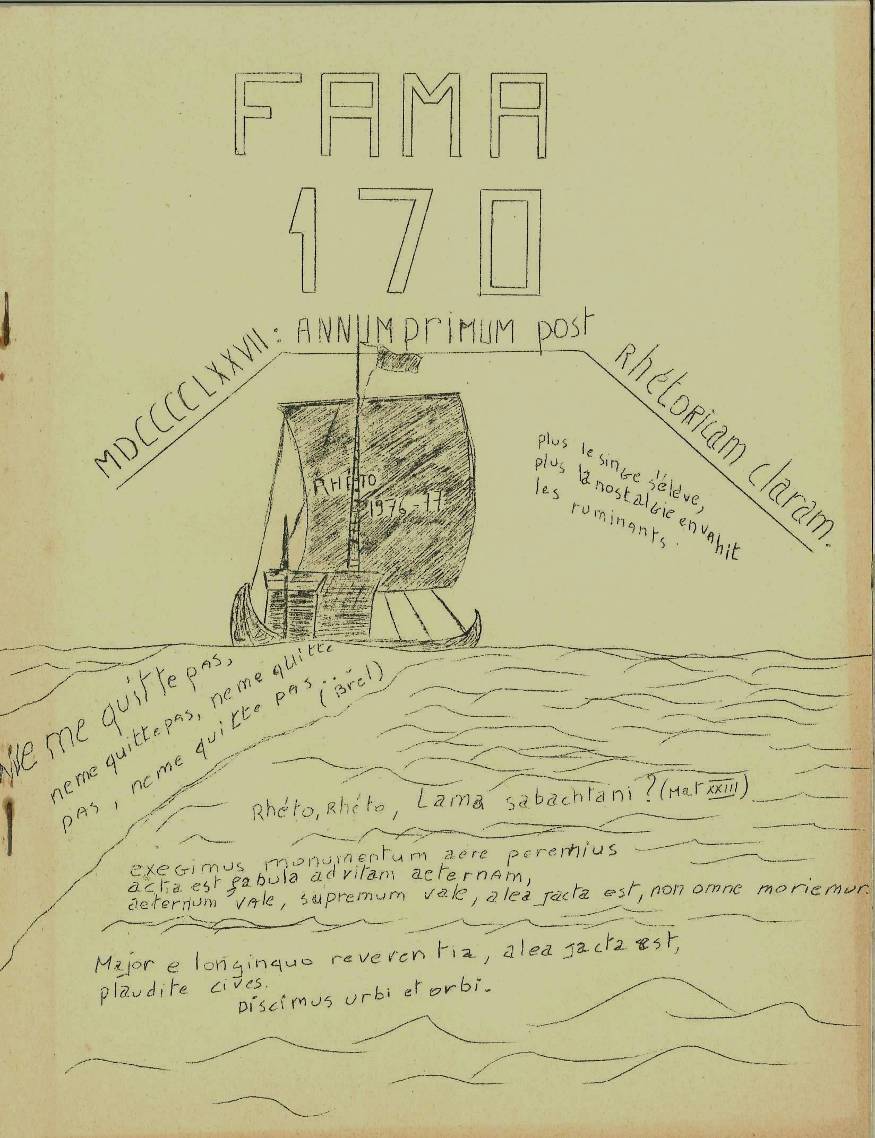 FAMA
170
MDCCCCLXXVII: ANNUM primum post Rhétoricam claram.
RHÉTO
1976-77
plus le singe s'élève,
plus la nostalgie envahit
les ruminants.
Ne me quitte pas,
ne me quitte pas, ne me quitte
pas, ne me quitte pas... (Brel)
Rhéto, Rhéto, Lama sabachtani ? (Mat XXIII)
exegimus monumentum aere perennius
acta est fabula ad vitam aeternam,
aeternum vale, supremum vale, alea jacta est, non omne moriemur
Major e longinquo reverentia, alea jacta est,
plaudite cives.
Discimus urbi et orbi.